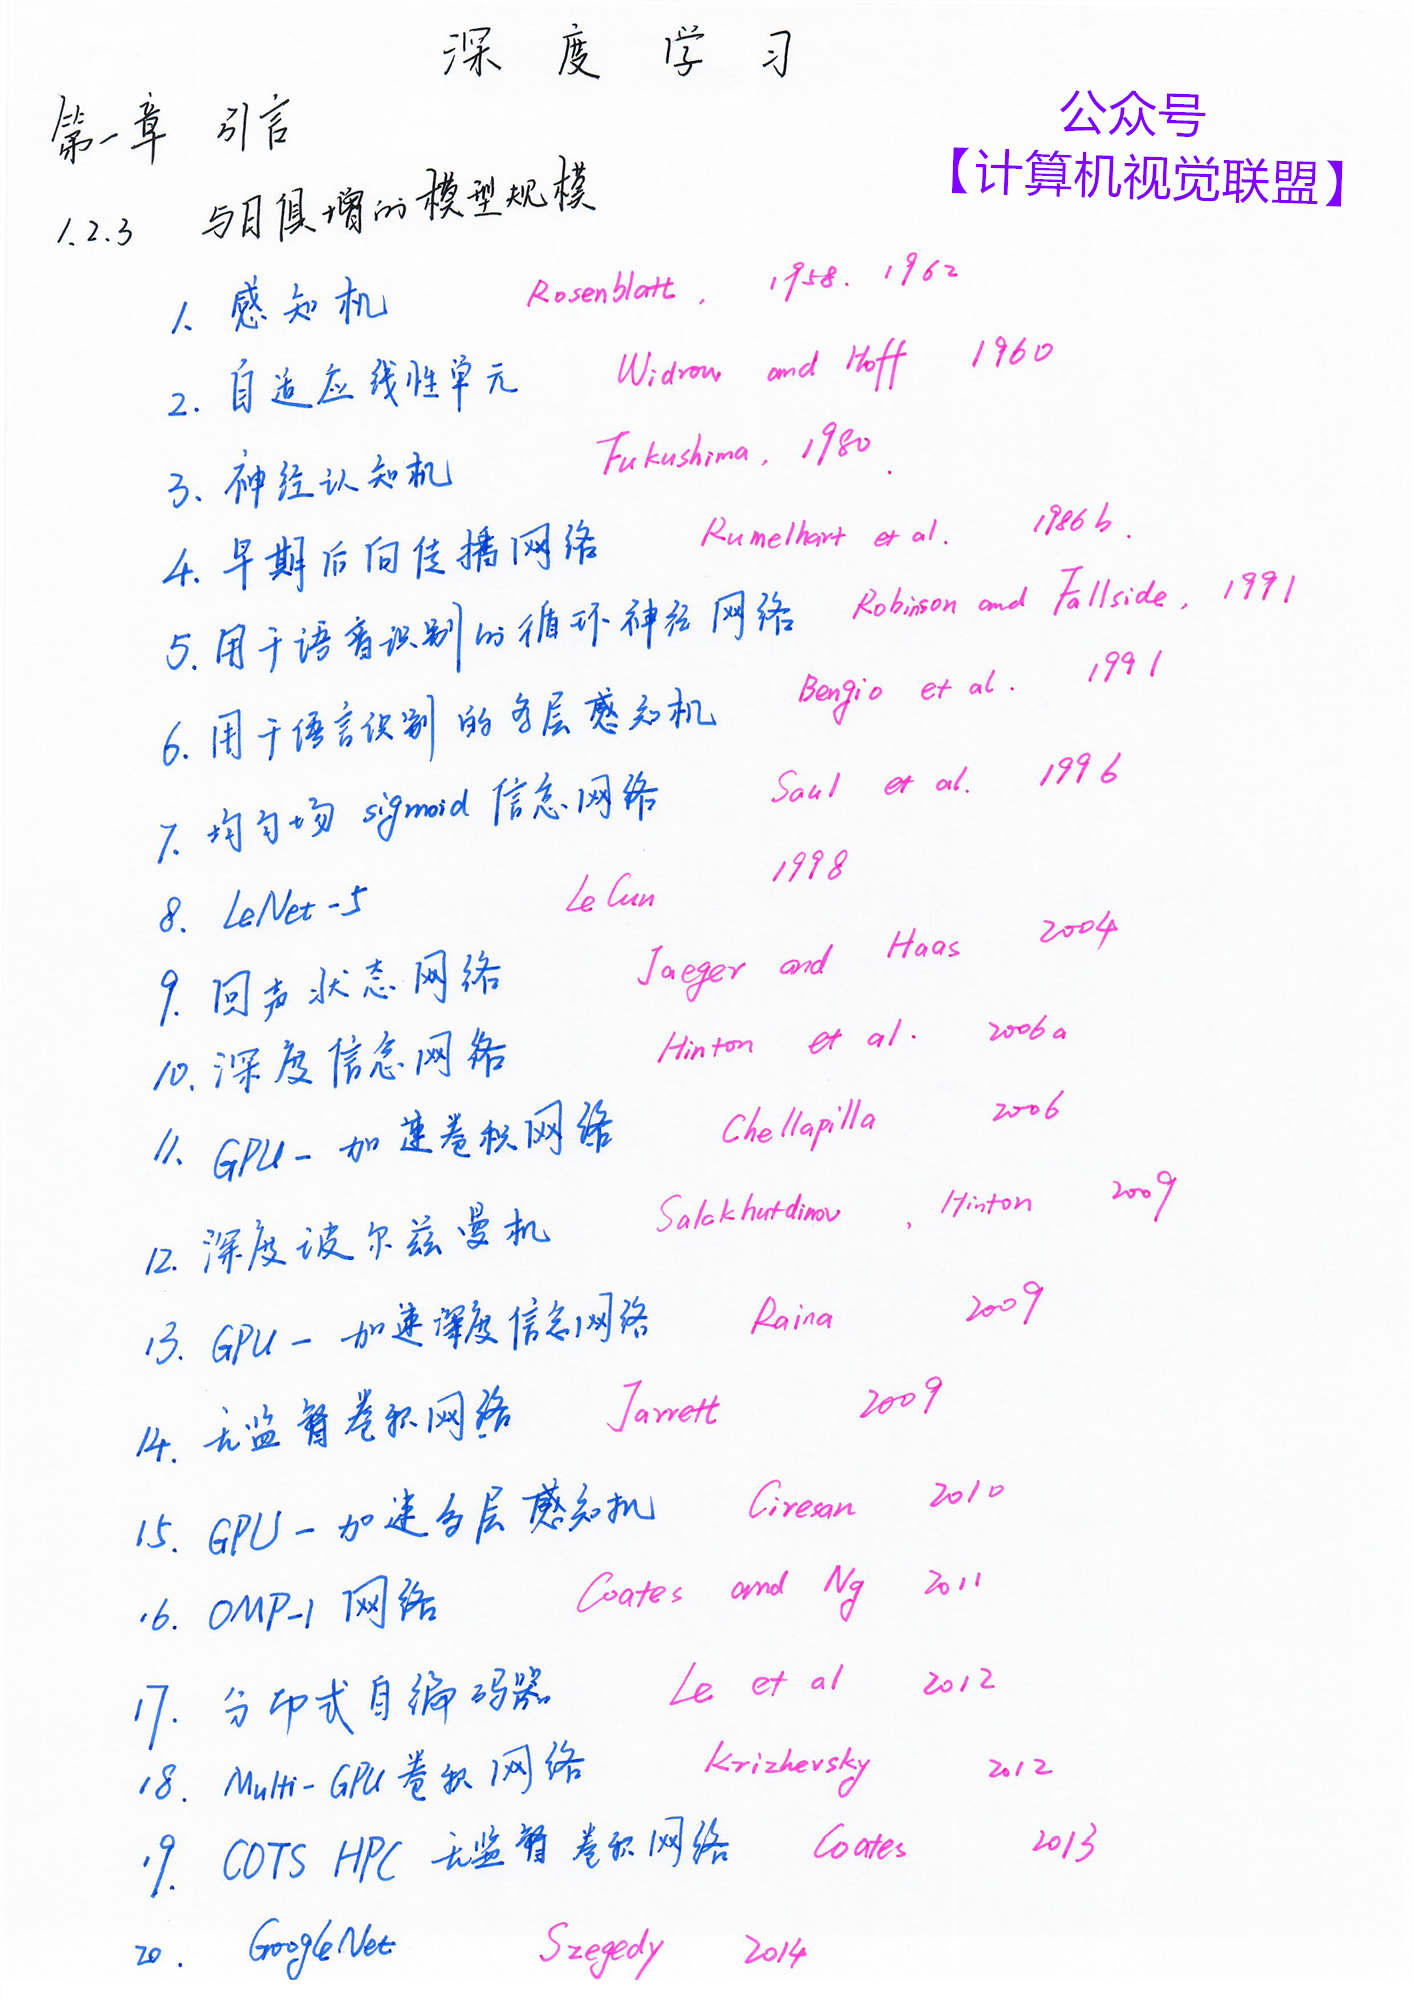 深度学习
第一章 引言
公众号
【计算机视觉联盟】
1.2.3 与日俱增的模型规模
1. 感知机 Rosenblatt, 1958. 1962
2. 自适应线性单元 Widrow and Hoff 1960
3. 神经认知机 Fukushima, 1980.
4. 早期后向传播网络 Rumelhart et al. 1986b.
5. 用于语音识别的循环神经网络 Robinson and Fallside, 1991
6. 用于语言识别的多层感知机 Bengio et al. 1991
7. 均匀场 sigmoid 信念网络 Saul et al. 1996
8. LeNet-5 LeCun 1998
9. 回声状态网络 Jaeger and Haas 2004
10. 深度信念网络 Hinton et al. 2006a
11. GPU-加速卷积网络 Chellapilla 2006
12. 深度波尔兹曼机 Salakhutdinov, Hinton 2009
13. GPU-加速深度信念网络 Raina 2009
14. 无监督卷积网络 Jarrett 2009
15. GPU-加速多层感知机 Ciresan 2010
16. OMP-1 网络 Coates and Ng 2011
17. 分布式自编码器 Le et al 2012
18. Multi-GPU卷积网络 Krizhevsky 2012
19. COTS HPC 无监督卷积网络 Coates 2013
20. GoogLeNet Szegedy 2014